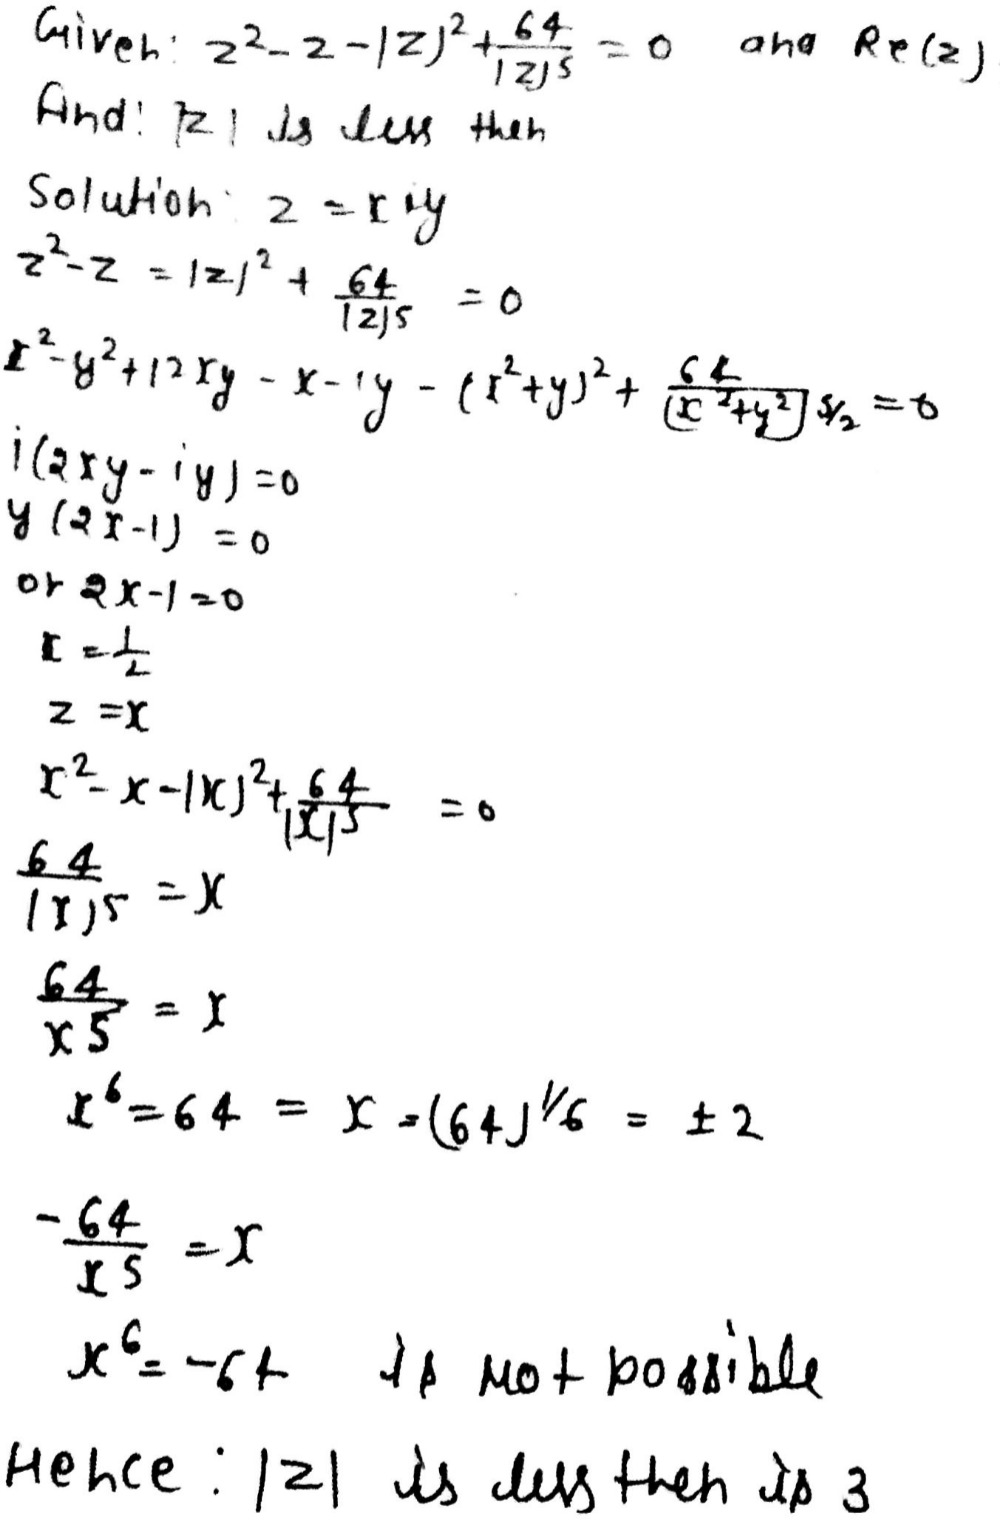 Given: z²-z-|z|²+64/|z|5 = 0 and Re(z)
And: |z| is less then
Solution: z = x iy
z²-z = |z|² + 64/|z|5 = 0
x²-y²+i2xy - x-iy - (x²+y)² + 64/(x²+y²)5/2 = 0
i(2xy-iy)=0
y(2x-1) = 0
or 2x-1=0
x = 1/2
z =x
x²-x-|x|²+64/|x|5 = 0
64/|x|5 = x
64/x5 = x
x⁶=64 = x =(64)1/6 = ±2
-64/x5 = x
x⁶= -64 is not possible
Hence: |z| is less then is 3